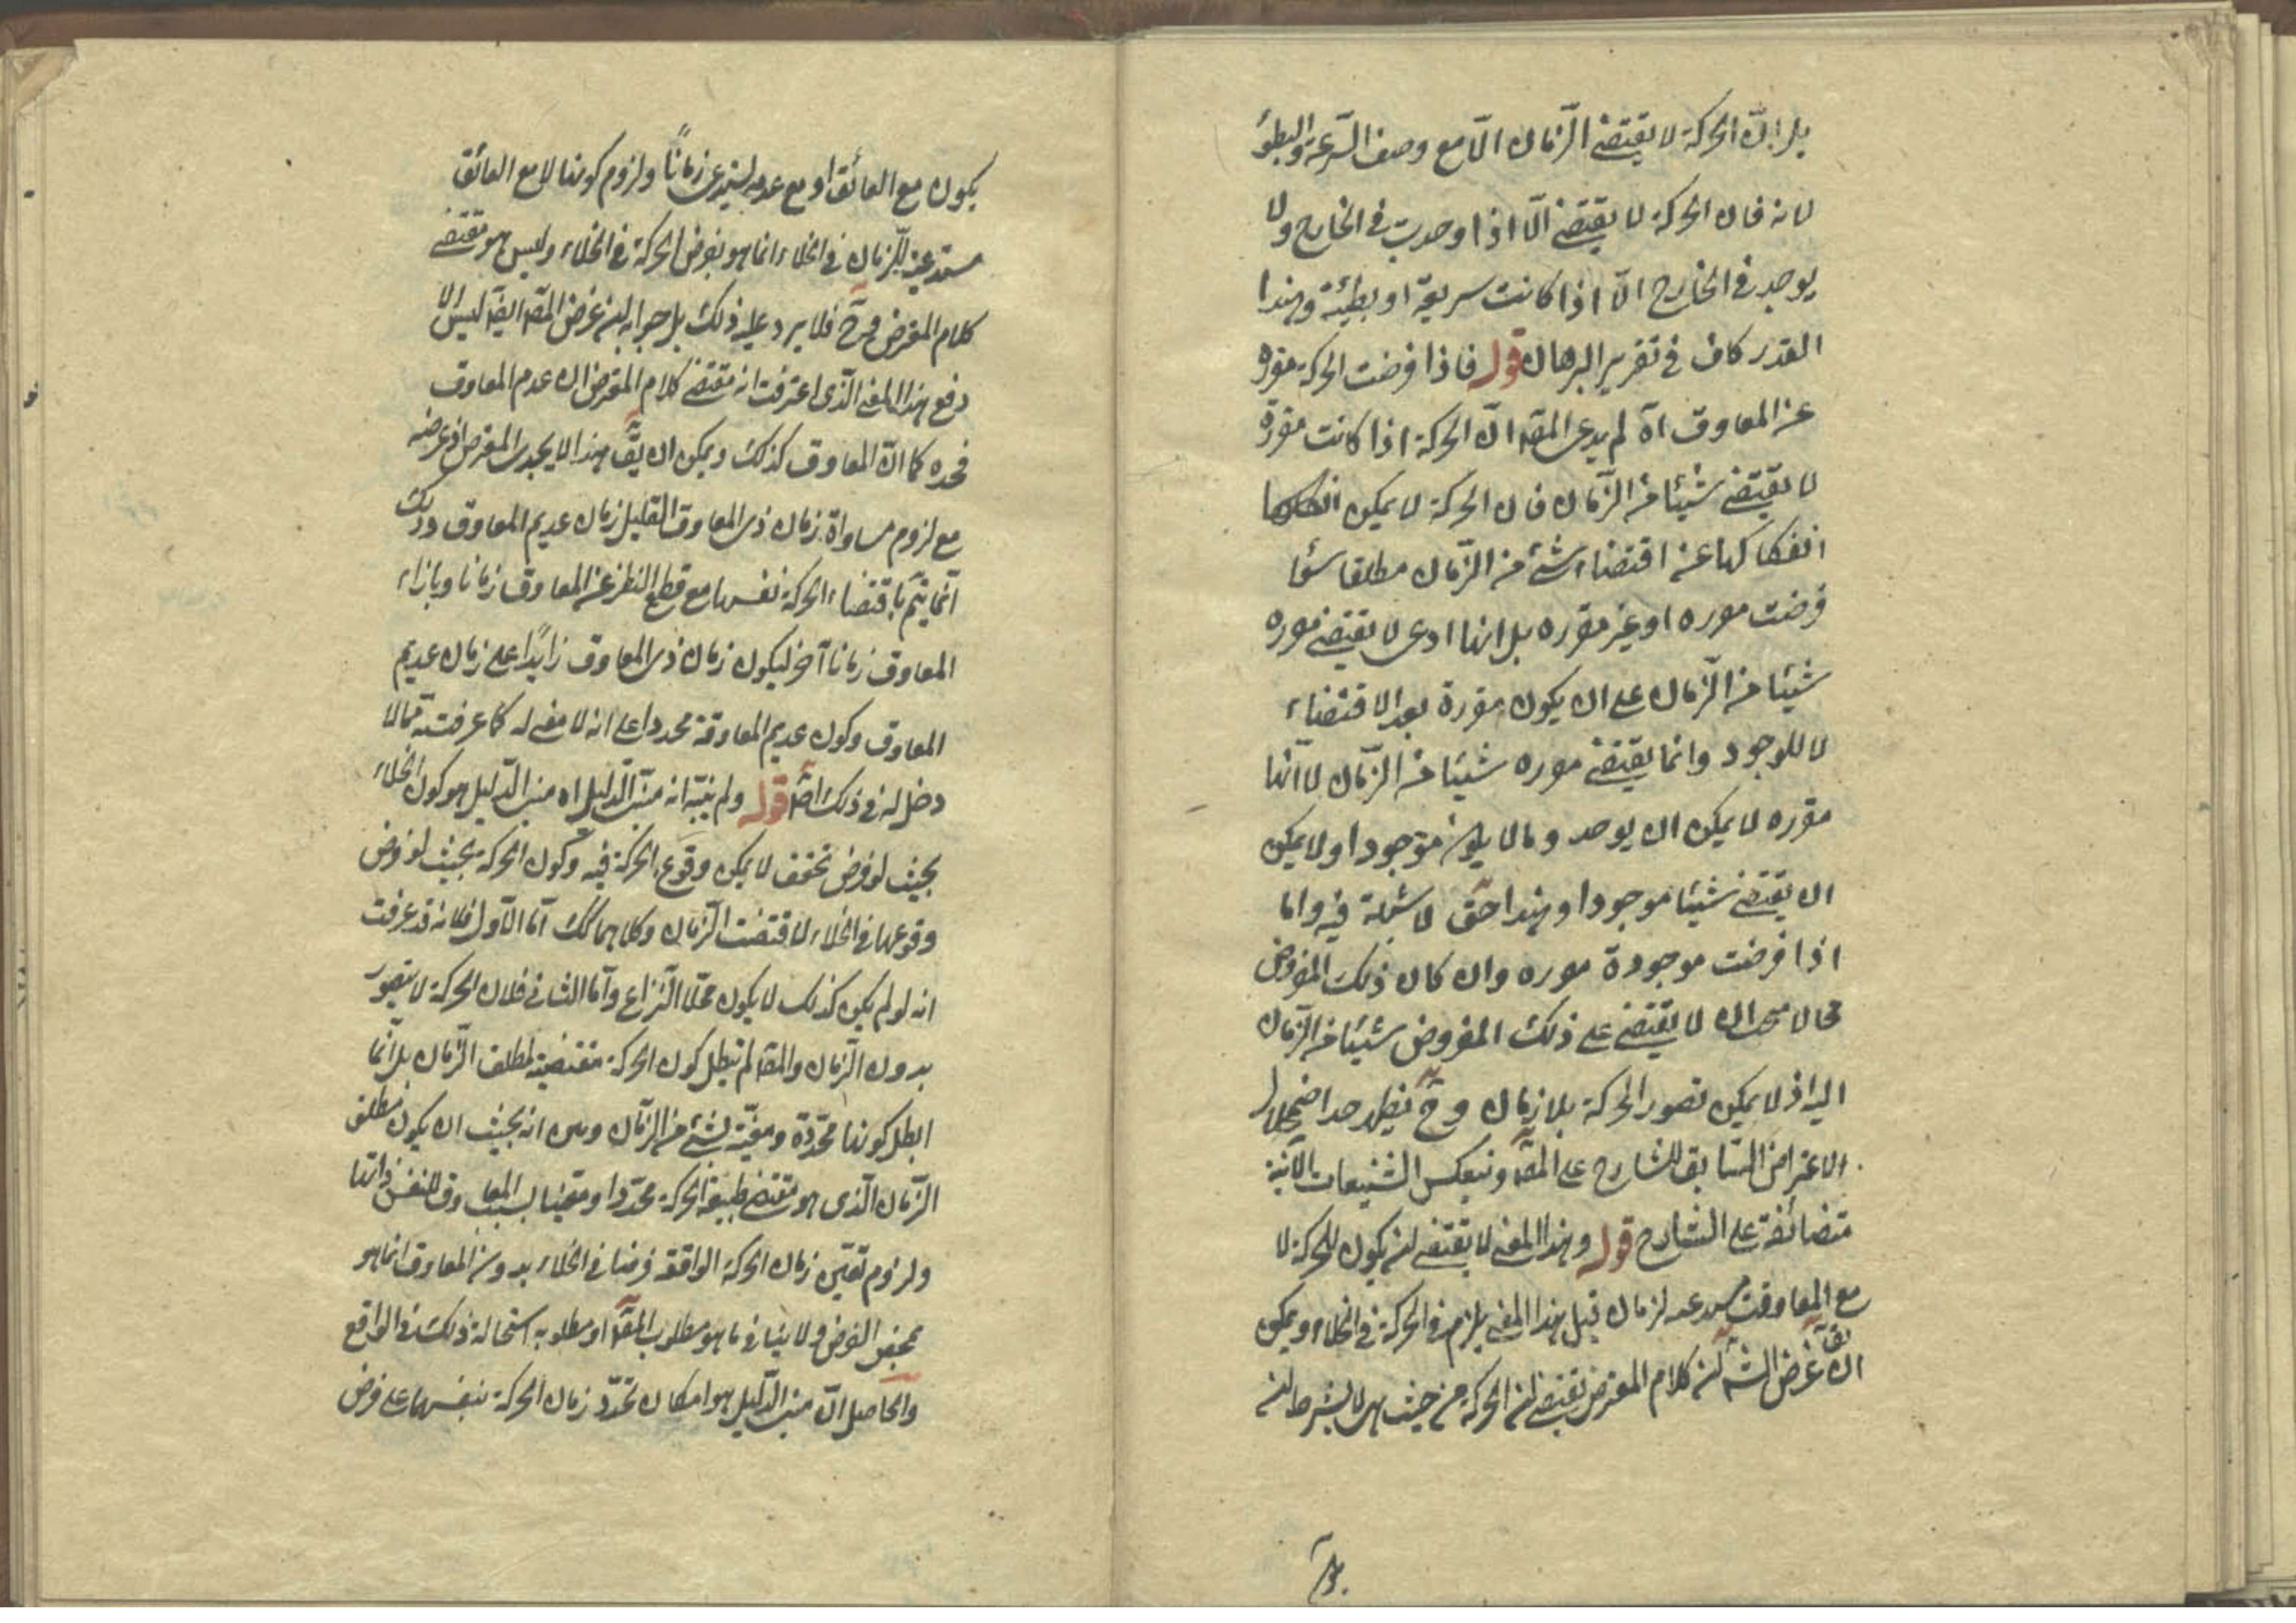 بل ان الحركة لا يقتضي الزمان الا مع وصف السرعة والبطؤ
لانه فان الحركة لا يقتضي الا اذا وجدت في الخارج ولا
يوجد في الخارج الا اذا كانت سريعة او بطيئة وهذا
القدر كاف في تقرير البرهان قوله فاذا فرضت الحركة مفرده
عن المعاوق اه لم يدع المصّ ان الحركة اذا كانت مفردة
لا يقتضي شيئا من الزمان فان الحركة لا يمكن
انفكاكها عن اقتضاء شئ من الزمان مطلقا سؤا
فرضت مفرده او غير مفرده بل انما ادعى لا يقتضي مفرده
شيئا من الزمان على ان يكون مفردة بعد الاقتضاء
لا للوجود وانما يقتضي مفرده شيئا من الزمان لا انها
مفرده لا يمكن ان يوجد وما لا يكون موجودا ولا يمكن
ان يقتضي شيئا موجودا وهذا حق لا شبهة فيه واما
اذا فرضت موجودة مفرده وان كان ذلك المفروض
محالا ان لا يقتضي على ذلك المفروض شيئا من الزمان
اليه اذ لا يمكن تصور الحركة بلا زمان وح يظهر جدا اضمحلال
الاعتراض السابق للشارح على المصّ وينعكس التشنيعات الآتية
متضائفة على الشارح قوله وهذا المعنى لا يقتضي ان يكون للحركة لا
مع المعاوقت لزمان قيل هذا المعنى يلزم في الحركة في الخلاء ويمكن
ان يقّ غرض الشّ ان كلام المعترض يقتضي ان الحركة من حيث هي لا بشرط ان
يكون
يكون مع العائق او مع عدمه يستدعي زمانًا ولزوم كونها لا مع العائق
مستدعية للزمان في الخلاء انما هو بفرض الحركة في الخلاء وليس هو مقتضى
كلام المعترض وح فلا يرد عليه ذلك بل جوابه ان غرض المصّ ايضّ ليس الا
دفع هذا المعنى الذي اعترفت انه مقتضى كلام المعترض ان عدم المعاوق
فحده كما ان المعاوق كذلك ويمكن ان يقّ هذا لا يجدي المعترض اذ غرضه
مع لزوم مساواة زمان ذي المعاوق القليل زمان عديم المعاوق وذلك
انما يتم باقتضاء الحركة نفسها مع قطع النظر عن المعاوق زمانا وبازاء
المعاوق زمانا آخر ليكون زمان ذي المعاوق زايدًا على زمان عديم
المعاوق وكون عديم المعاوقة محددا على انه لا معنى له كما عرفته مما لا
دخل له في ذلك اصّ قوله ولم يتبّه انه مبنى الدليل اه مبنى الدليل هو كون الخلاء
بحيث لو فرض تحقق لا يمكن وقوع الحركة فيه وكون الحركة بحيث لو فرض
وقوعها في الخلاء لاقتضت الزمان وكلاهما كك اما الاول فلانه قد عرفت
انه لو لم يكن كذلك لا يكون محلا النزاع واما الثاني فلان الحركة لا يتصور
بدون الزمان والمصّ لم يبطل كون الحركة مقتضية لمطلق الزمان بل انما
ابطل كونها محددة ومعيّنة لشئ من الزمان وبين انه بحيث ان يكون مطلق
الزمان الذي هو مقتضى طبيعة الحركة محددا ومعينا بسبب المعاوق لا بنفس ذاتها
ولزوم تعين زمان الحركة الواقعة فرضا في الخلاء بدون المعاوق انما هو
بمحض الفرض ولا ينافي ما هو مطلوب المصّ او مطلوبه استحالة ذلك في الواقع
والحاصل ان مبنى الدليل هو امكان تحدد زمان الحركة بنفسها على فرض